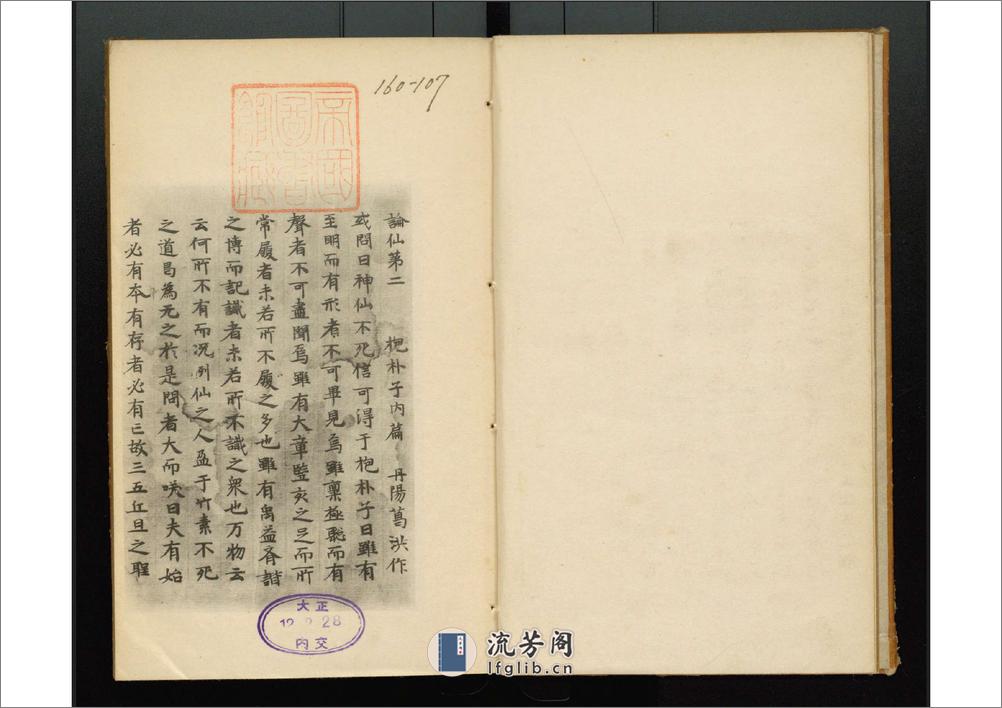 160-107
帝國
圖書
館藏
論仙第二 抱朴子内篇 丹陽葛洪作
或問曰神仙不死信可得于抱朴子曰雖有
至明而有形者不可畢見焉雖稟極聡而有
聲者不可盡聞焉雖有大章竪亥之足而所
常履者未若所不履之多也雖有禹益齊諧
之博而記識者未若所不識之衆也万物云
云何所不有而况列仙之人盈于竹素不死
之道曷為无之於是問者大而咲曰夫有始
者必有夲有存者必有亡故三五丘旦之聖
大正
12.2.28
内交
流芳阁
lfglib.cn